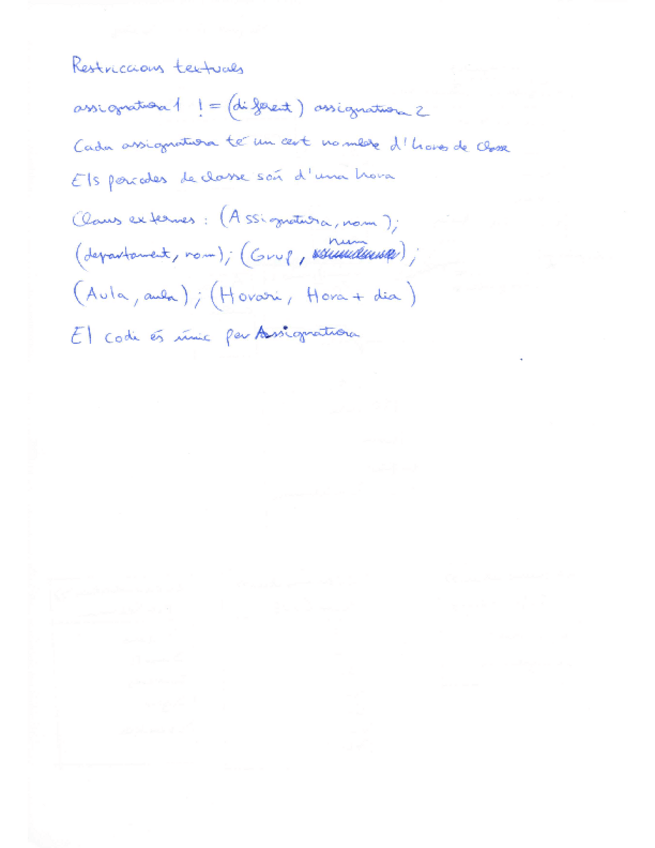 Restriccions textuals
assignatura 1 != (diferent) assignatura 2
Cada assignatura té un cert nombre d'hores de classe
Els períodes de classe són d'una hora
Claus externes: (Assignatura, nom);
(departament, nom); (Grup, num);
(Aula, aula); (Horari, Hora + dia)
El codi és únic per Assignatura